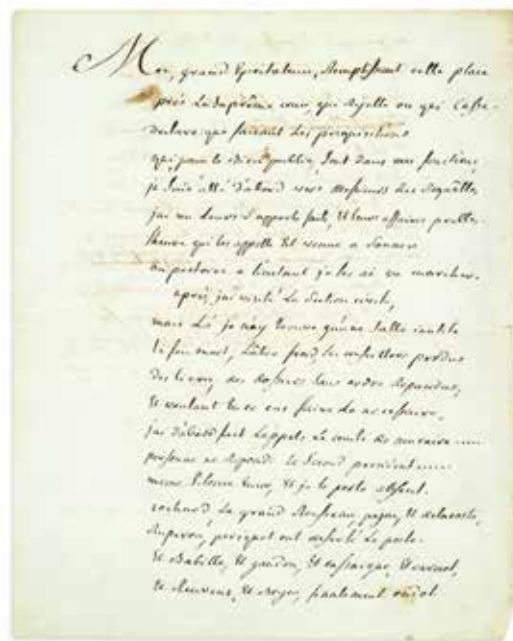 Moi, grand Spectateur, Remplissant cette place
près La Suprême cour, que Rejette ou qui Casse
Declare que suivant Les
qui, pour le bien public, sont dans mes fonctions,
je suis allé d'abord vers Messieurs des Requêtes,
j'ai vu Leurs Rapports faits, Et leurs affaires prettes.
L'heure qui les appelle Est venue a Sonner
au a l'instant je les ai vu marcher.
après j'ai visité La Section civile,
mais Là je n'ay trouvé qu'une Salle inutile
le feu mort, L'âtre froid, les perdus
des Dossiers sans ordre Repandus,
Et voulant En ce cas faire Le necessaire,
j'ai d'abord fait L'appel; Le comte de muraire ....
personne ne Repond. Le Second president ....
meme Silence Encor, Et je le porte absent.
cochard Le grand Rousseau, pajon, Et delacoste,
Ruperou, ont deserté Le poste.
Et Babille, Et gandon, Et cassaigne,
Et Reuvens, Et Boyer, oudot